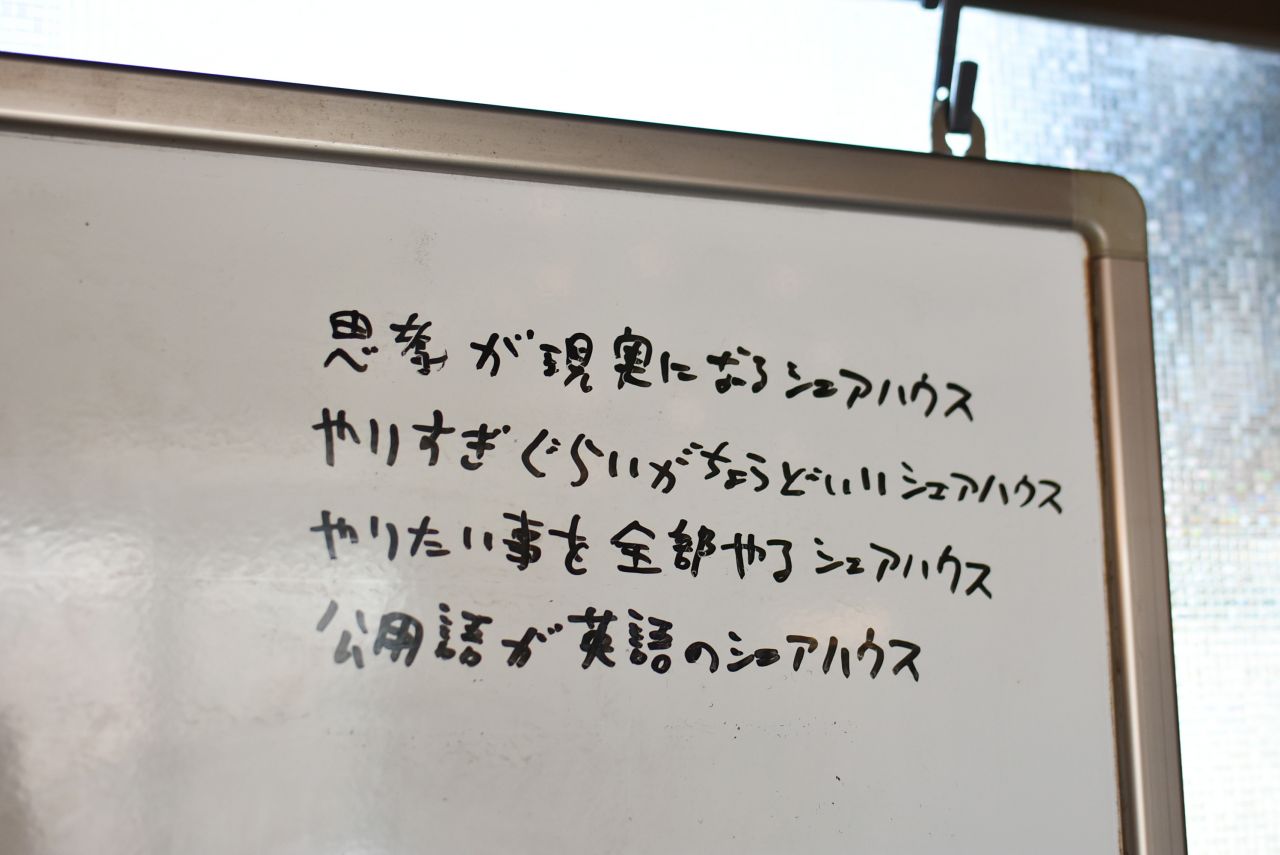 思考が現実になるシェアハウス
やりすぎぐらいがちょうどいいシェアハウス
やりたい事を全部やるシェアハウス
公用語が英語のシェアハウス